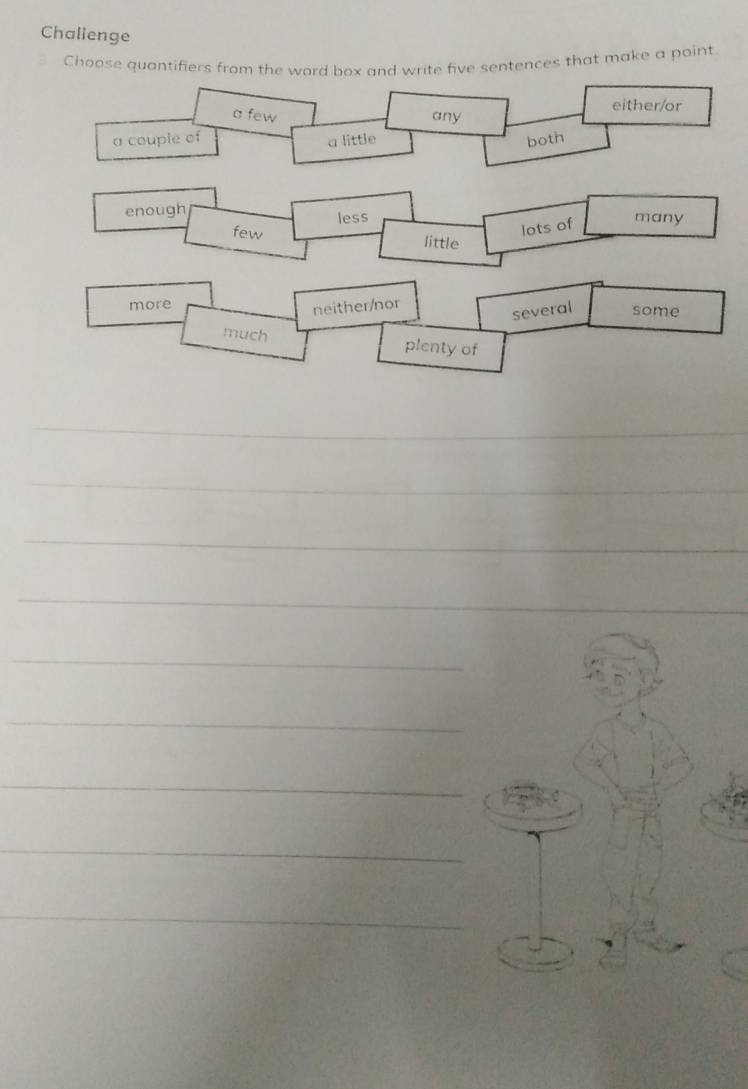 Challenge
3 Choose quantifiers from the word box and write five sentences that make a point.
a few any either/or
a couple of a little both
enough few less little lots of many
more much neither/nor plenty of several some